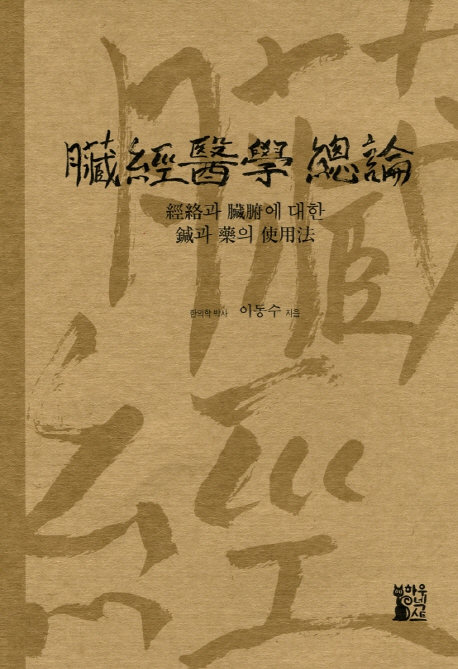 臟經醫學 總論
經絡과 臟腑에 대한
鍼과 藥의 使用法
한의학 박사 이동수 지음
臟
經
하우넥스트